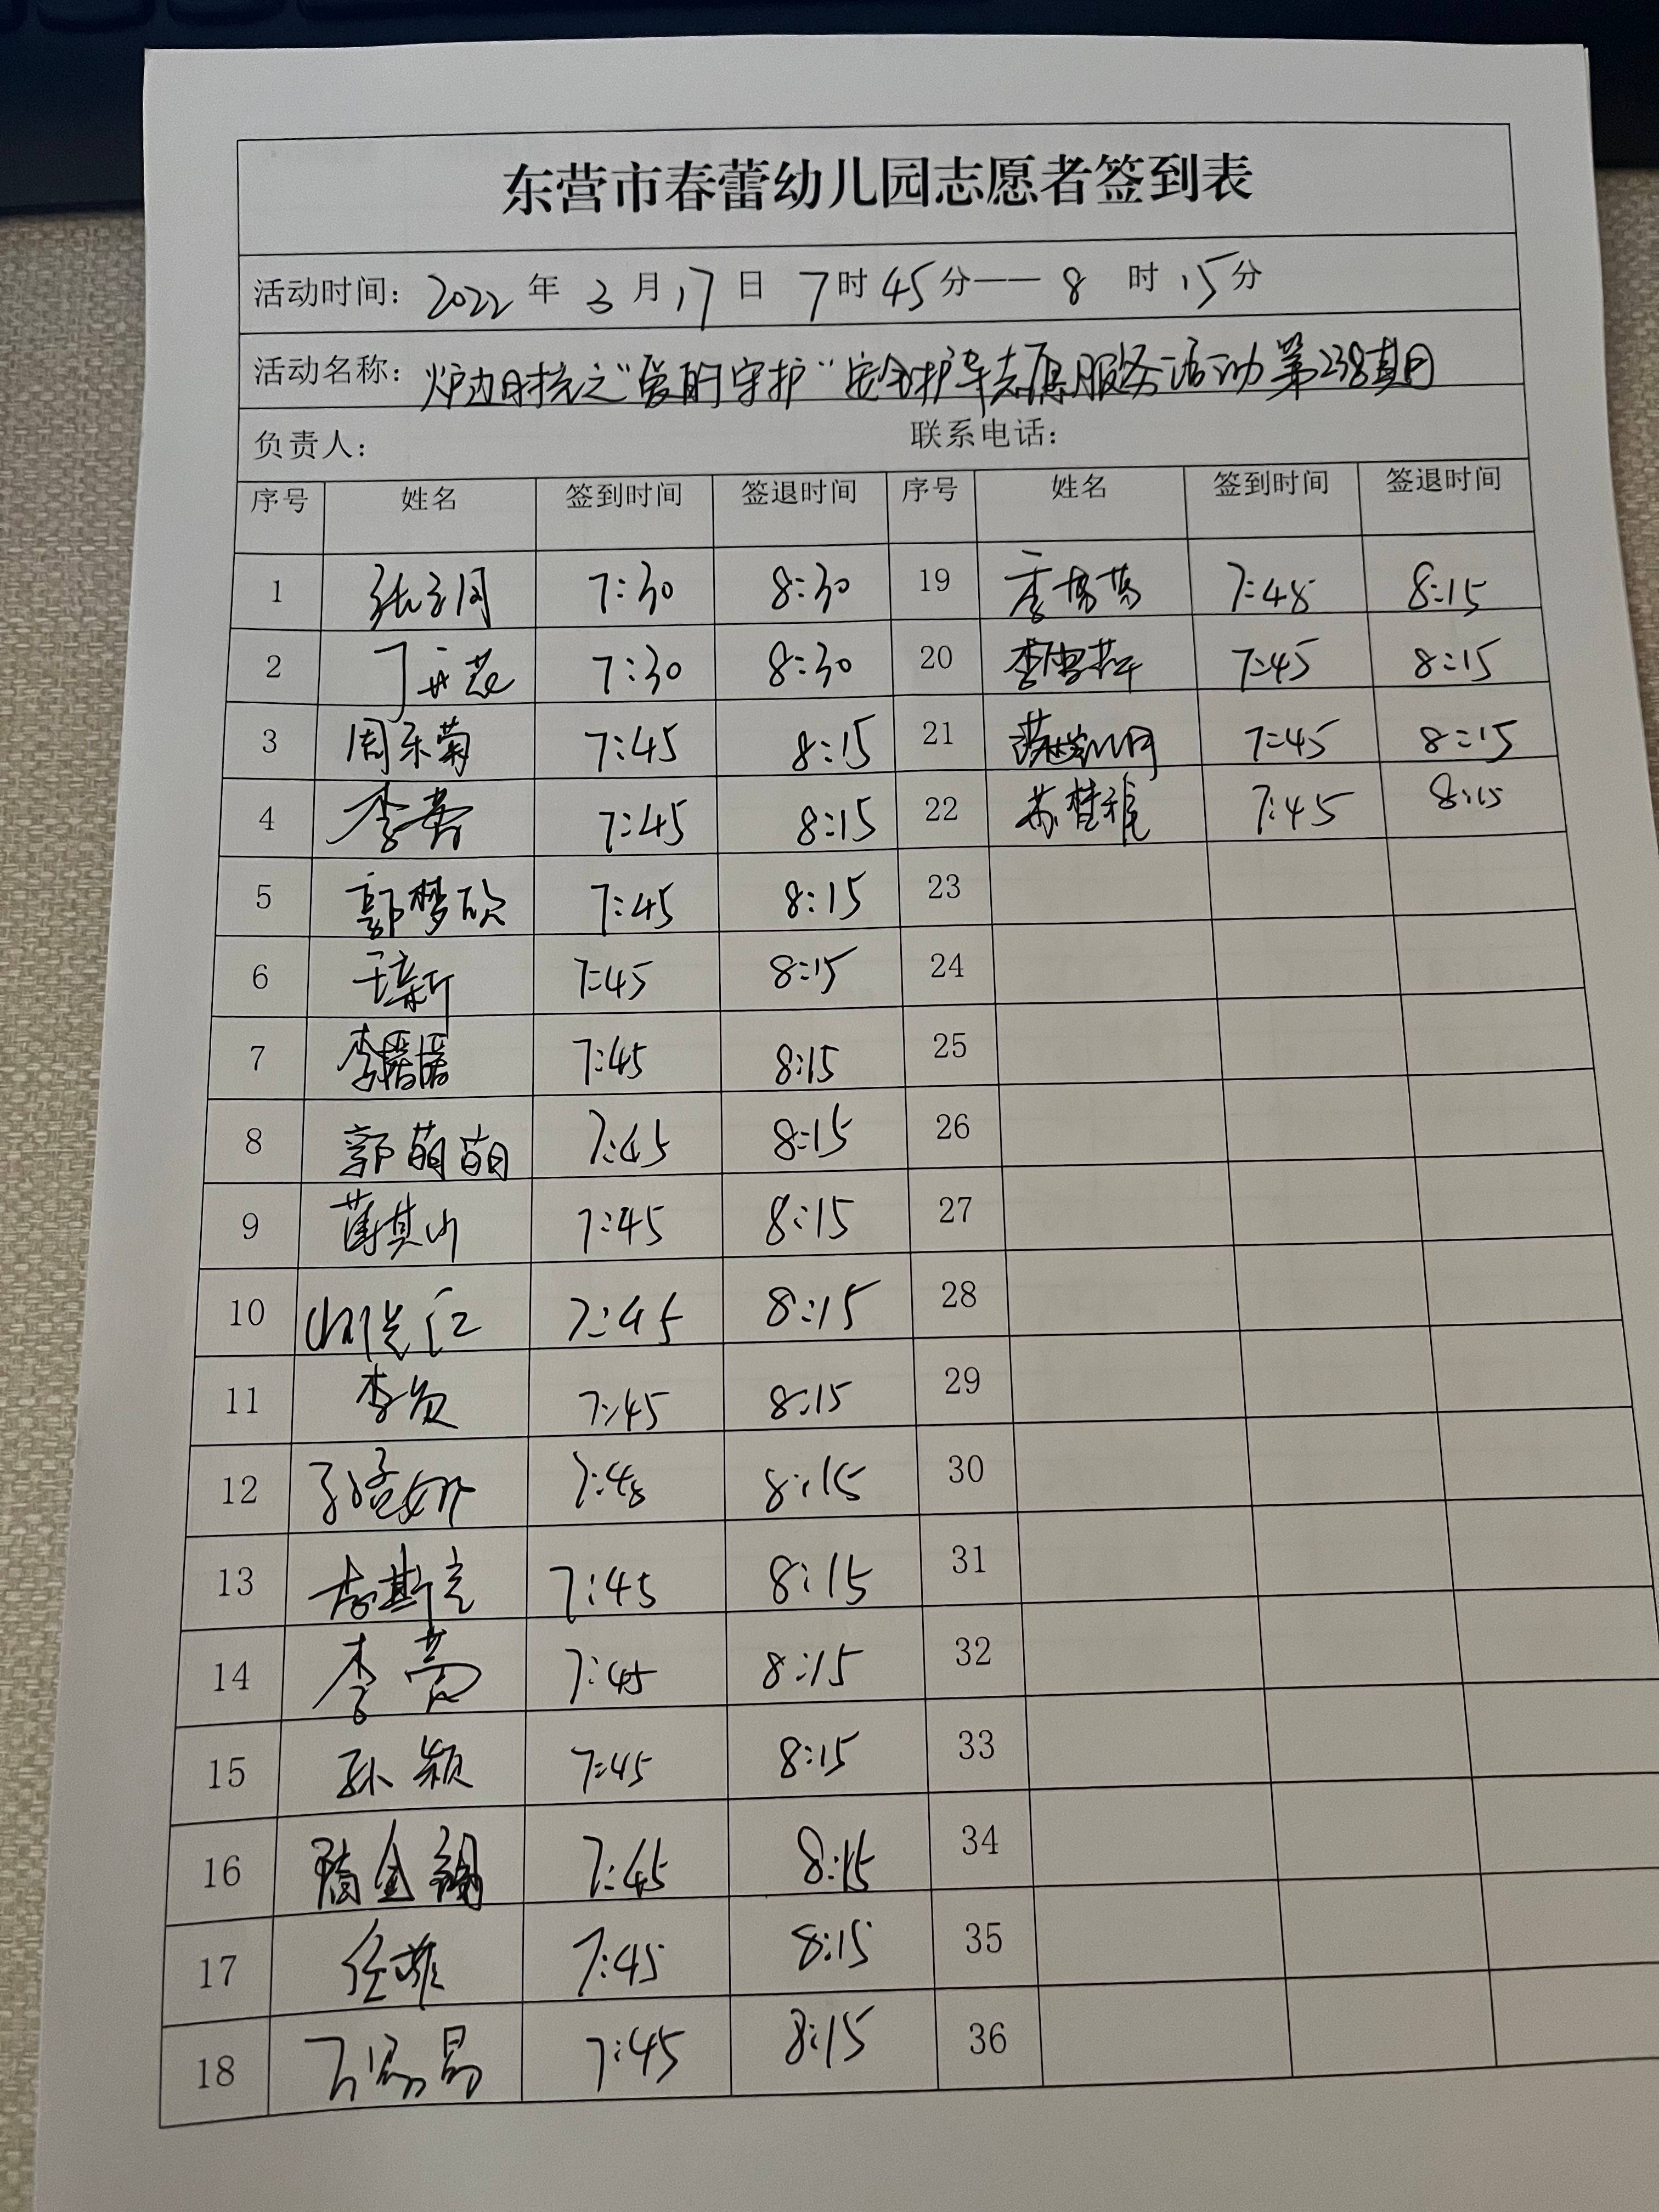 东营市春蕾幼儿园志愿者签到表
活动时间：2022 年 3 月 17 日 7 时 45 分——8 时 15 分
活动名称："爱的守护"安全护学志愿服务活动第238期
负责人： 联系电话：
序号 姓名 签到时间 签退时间 序号 姓名 签到时间 签退时间
1 7:30 8:30 19 李芳芳 7:48 8:15
2 7:30 8:30 20 7:45 8:15
3 周乐菊 7:45 8:15 21 7:45 8:15
4 李 7:45 8:15 22 苏楚雅 7:45 8:15
5 郭梦欣 7:45 8:15 23
6 7:45 8:15 24
7 李媛媛 7:45 8:15 25
8 郭萌萌 7:45 8:15 26
9 薄其山 7:45 8:15 27
10 7:45 8:15 28
11 李 7:45 8:15 29
12 7:48 8:15 30
13 7:45 8:15 31
14 李 7:45 8:15 32
15 孙颖 7:45 8:15 33
16 隋金 7:45 8:15 34
17 任 7:45 8:15 35
18 7:45 8:15 36